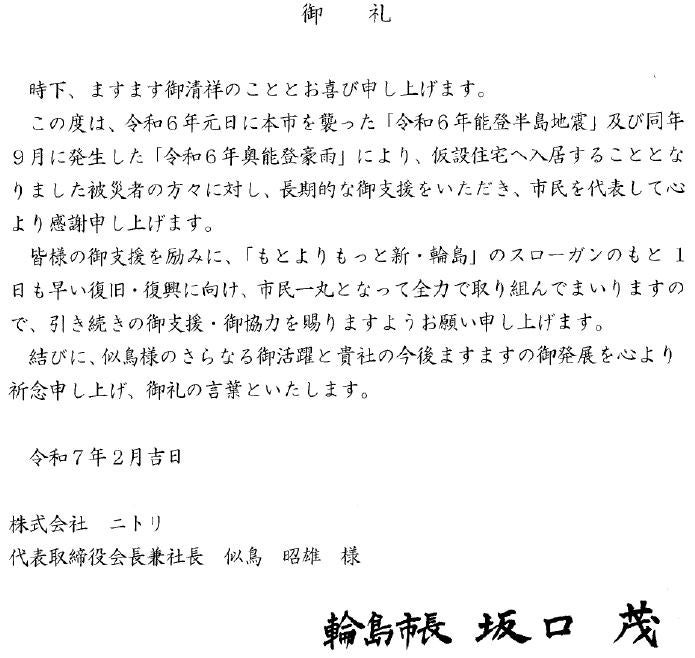 御　　礼
時下、ますます御清祥のこととお喜び申し上げます。
この度は、令和６年元日に本市を襲った「令和６年能登半島地震」及び同年
９月に発生した「令和６年奥能登豪雨」により、仮設住宅へ入居することとな
りました被災者の方々に対し、長期的な御支援をいただき、市民を代表して心
より感謝申し上げます。
皆様の御支援を励みに、「もとよりもっと新・輪島」のスローガンのもと１
日も早い復旧・復興に向け、市民一丸となって全力で取り組んでまいりますの
で、引き続きの御支援・御協力を賜りますようお願い申し上げます。
結びに、似鳥様のさらなる御活躍と貴社の今後ますますの御発展を心より
祈念申し上げ、御礼の言葉といたします。
令和７年２月吉日
株式会社　ニトリ
代表取締役会長兼社長　似鳥　昭雄　様
輪島市長　坂口　茂